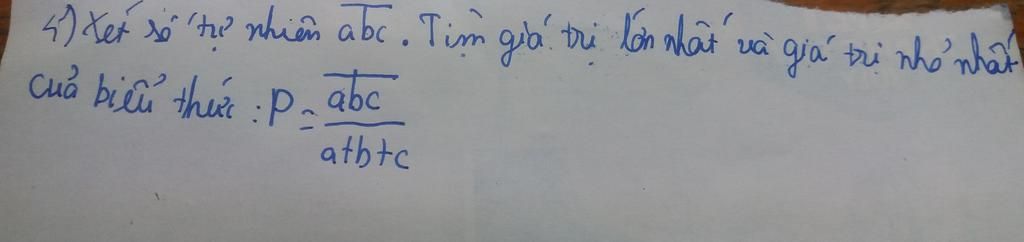 4) Xét số tự nhiên \overline{abc}. Tìm giá trị lớn nhất và giá trị nhỏ nhất
của biểu thức : P = \frac{\overline{abc}}{a+b+c}